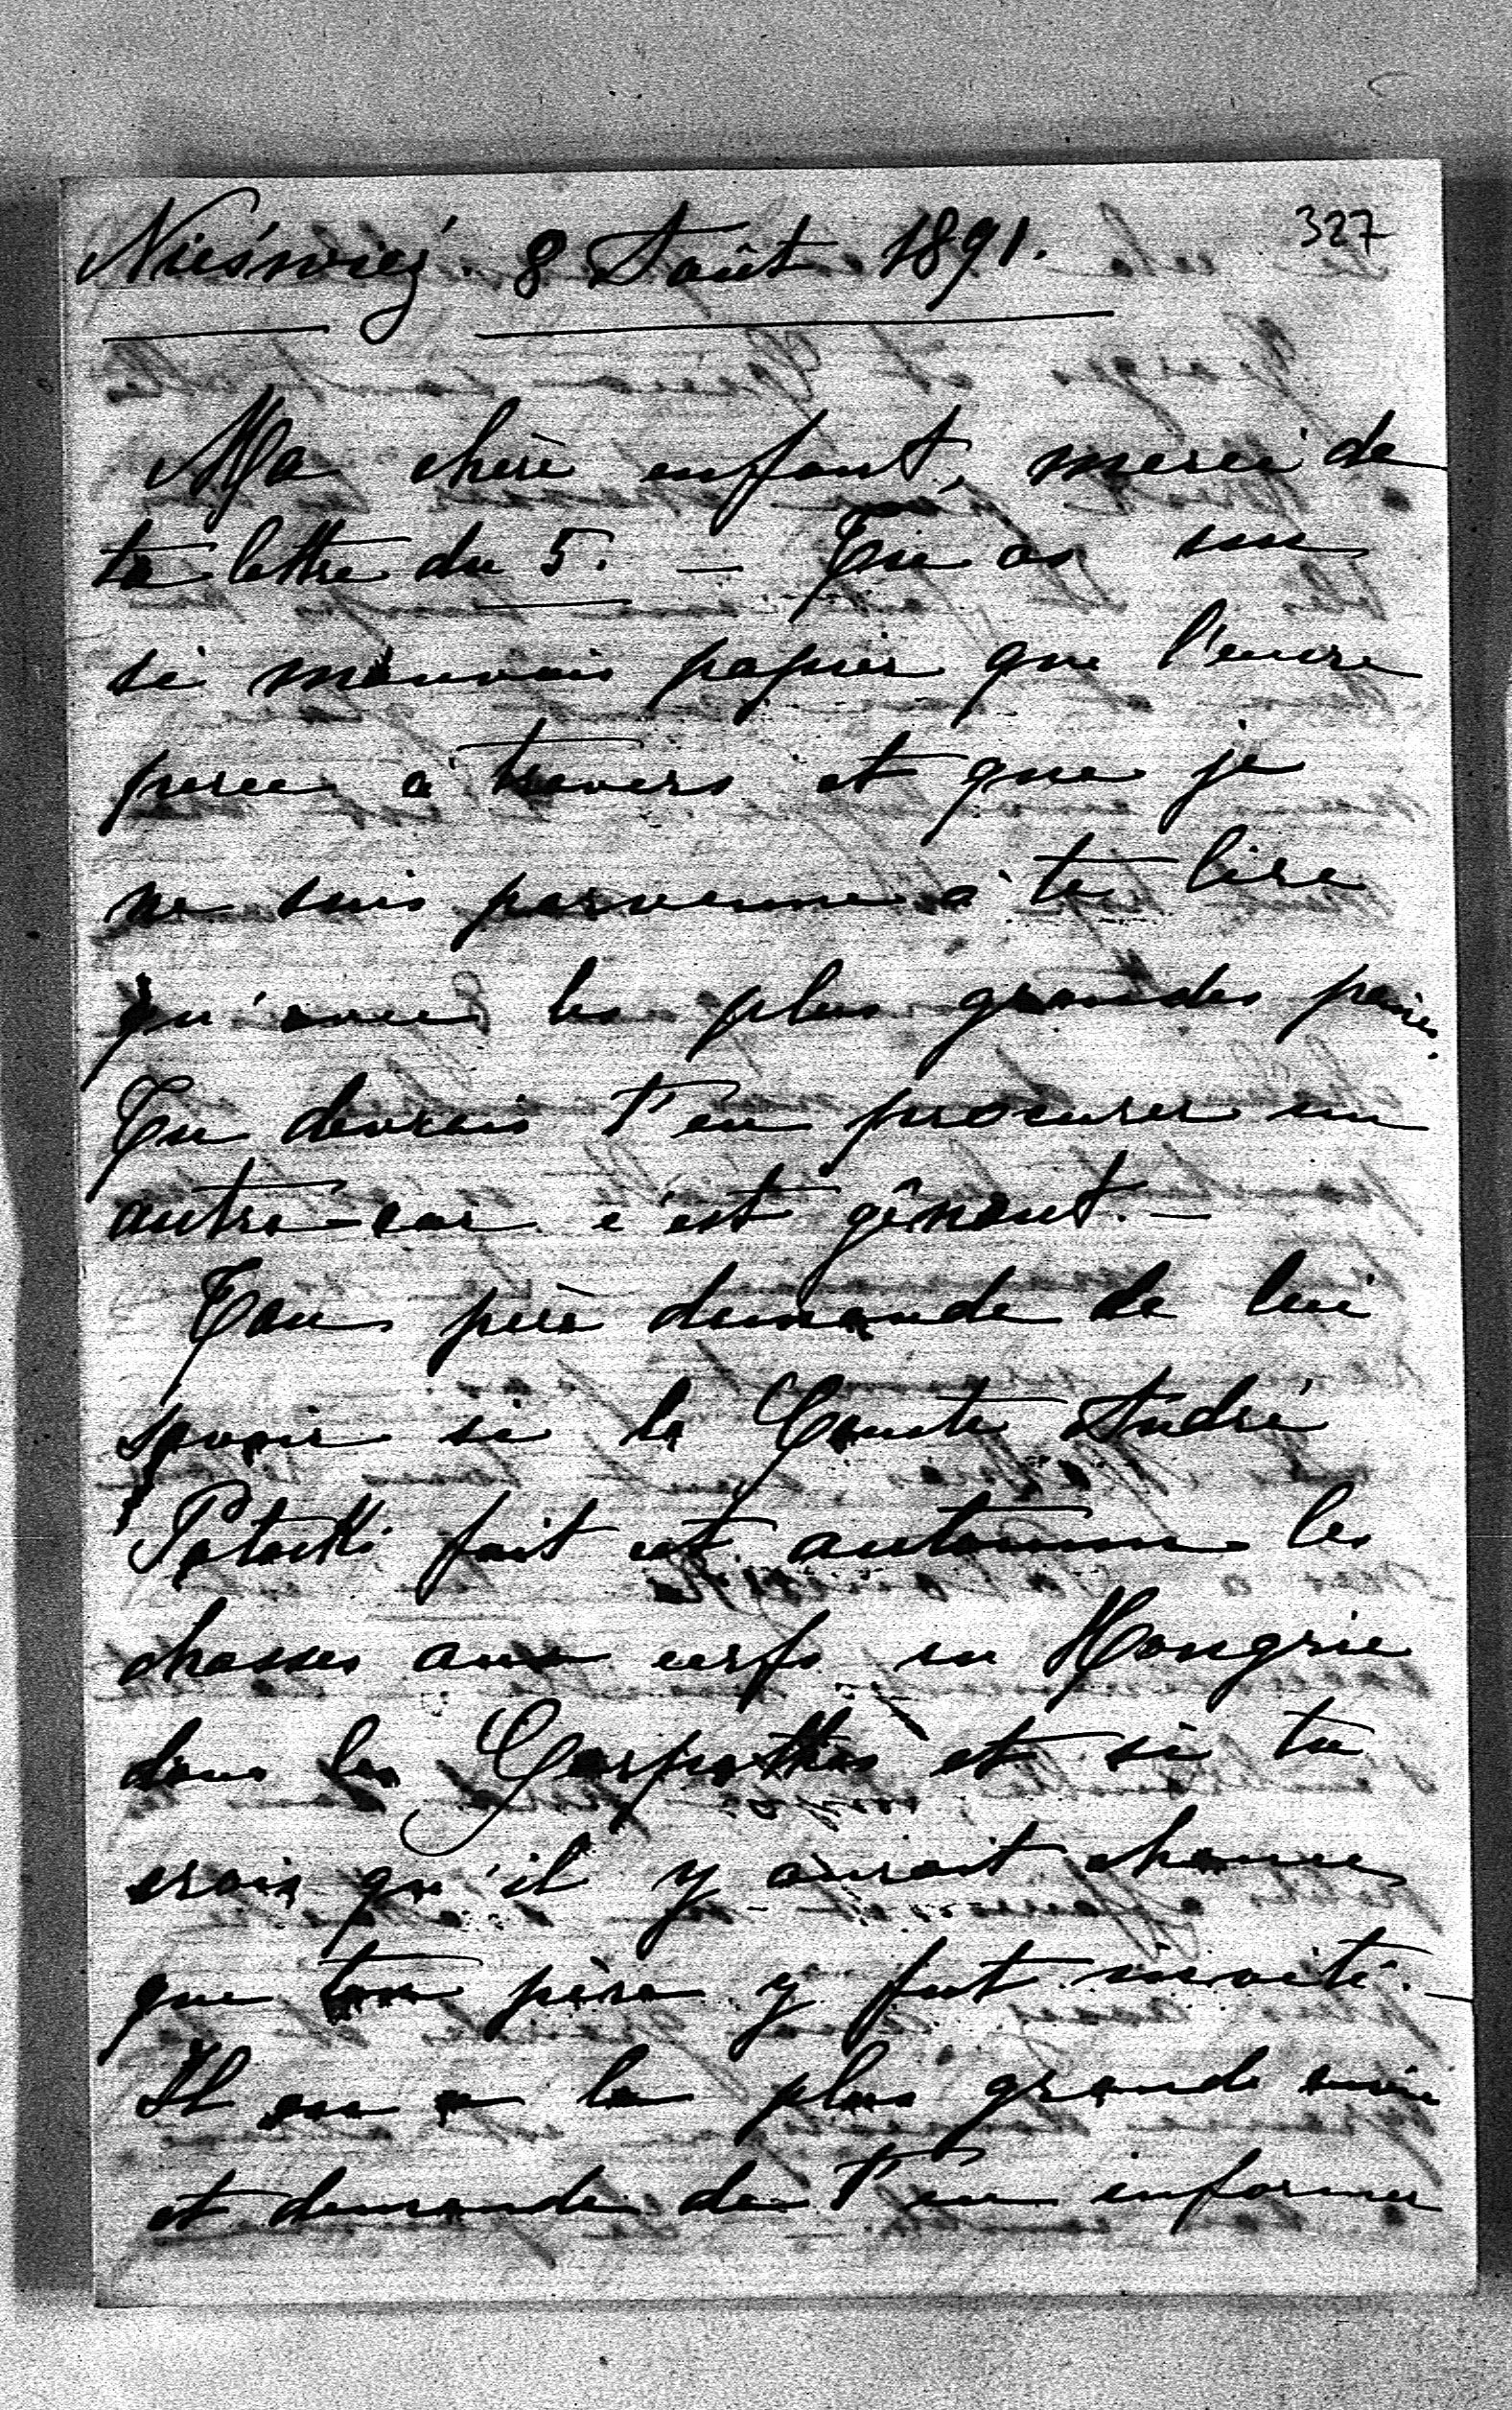 327
Nieświeź. 8 Août 1891.
Ma chère enfant, merci de
ta lettre du 5. — Tu as un
si mauvais papier que l'encre
perce à travers et que je
ne suis parvenue à te lire
qu'avec les plus grandes peines.
Tu devrais t'en procurer un
autre - car c'est gênant. —
Ton père demande de lui
savoir si le Comte André
Potocki fait cet automne les
chasses aux cerfs en Hongrie
dans les Carpathes et si tu
crois qu'il y aurait chance
que ton père y fut invité. —
Il en a la plus grande envie
et demande de t'en informer